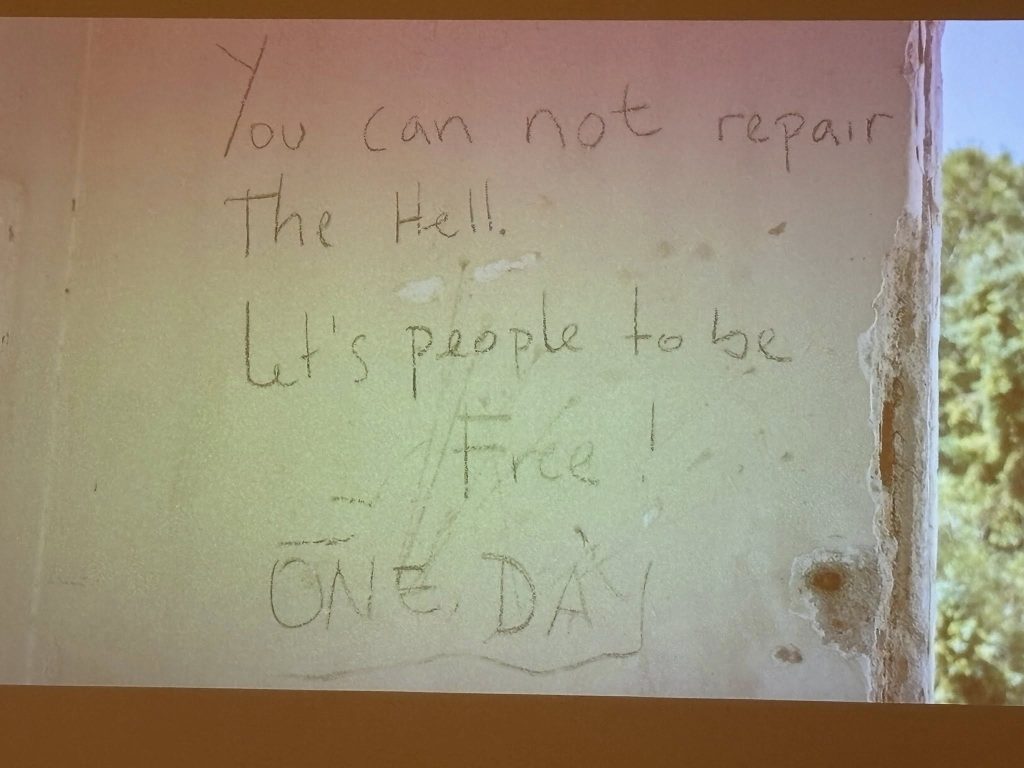 You can not repair
The Hell.
Let's people to be
Free!
ONE DAY